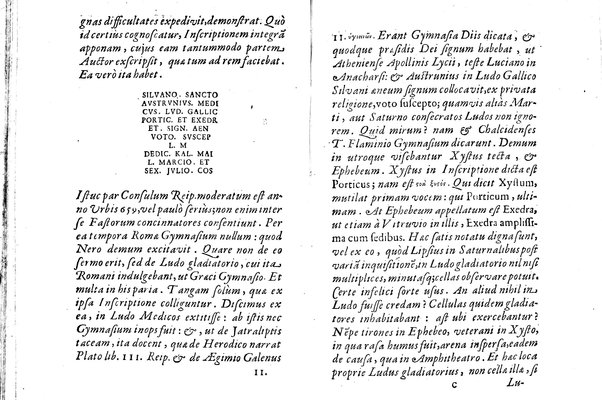 gnas difficultates expedivit, demonstrat. Quò
id certius cognoscatur, Inscriptionem integrā
apponam, cujus eam tantummodo partem
Auctor exscripsit, qua tum ad rem faciebat.
Ea verò ita habet.
SILVANO. SANCTO
AVSTRVNIVS. MEDI
CVS. LVD. GALLIC
PORTIC. ET EXEDR
ET. SIGN. AEN
VOTO. SVSCEP
L. M
DEDIC. KAL. MAI
L. MARCIO. ET
SEX. JULIO. COS
Istuc par Consulum Reip. moderatum est an-
no Vrbis 659, vel paulò seriùs; non enim inter
se Fastorum concinnatores consentiunt. Per
ea tempora Romæ Gymnasium nullum: quod
Nero demum excitavit. Quare non de eo
sermo erit, sed de Ludo gladiatorio, cui ita
Romani indulgebant, ut Græci Gymnasio. Et
multa in his paria. Tangam solùm, quæ ex
ipsa Inscriptione colliguntur. Discimus ex
ea, in Ludo Medicos extitisse: ab istis nec
Gymnasium inops fuit: &, ut de Jatraliptis
taceam, ita docent, quæ de Herodico narrat
Plato lib. III. Reip. & de Ægimio Galenus
II.
II. Erant Gymnasia Diis dicata, &
quodque præsidis Dei signum habebat, ut
Atheniense Apollinis Lycii, teste Luciano in
Anacharsi: & Austrunius in Ludo Gallico
Silvani æneum signum collocavit, ex privata
religione, voto suscepto; quamvis aliàs Mar-
ti, aut Saturno consecratos Ludos non igno-
rem. Quid mirum? nam & Chalcidenses
T. Flaminio Gymnasium dicarunt. Demum
in utroque visebantur Xystus tecta, &
Ephebeum. Xystus in Inscriptione dicta est
Porticus; nam est Qui dicit Xystum,
mutilat primam vocem: qui Porticum, ulti-
mam. At Ephebeum appellatum est Exedra,
ut etiam à Vitruvio in illis, Exedra amplissi-
ma cum sedibus. Hac satis notatu digna sunt,
vel ex eo, quòd Lipsius in Saturnalibus post
variā inquisitionē, in Ludo gladiatorio nil nisi
multiplices, minutasq; cellas observare potuit.
Certe infelici sorte usus. An aliud nihil in
Ludo fuisse credam? Cellulas quidem gladia-
tores inhabitabant: ast ubi exercebantur?
Nēpe tirones in Ephebeo, veterani in Xysto,
in qua rasa humus fuit, arena inspersa, eadem
de causa, qua in Amphitheatro. Et hæc loca
proprie Ludus gladiatorius, non cellæ illæ, si
C Lu-